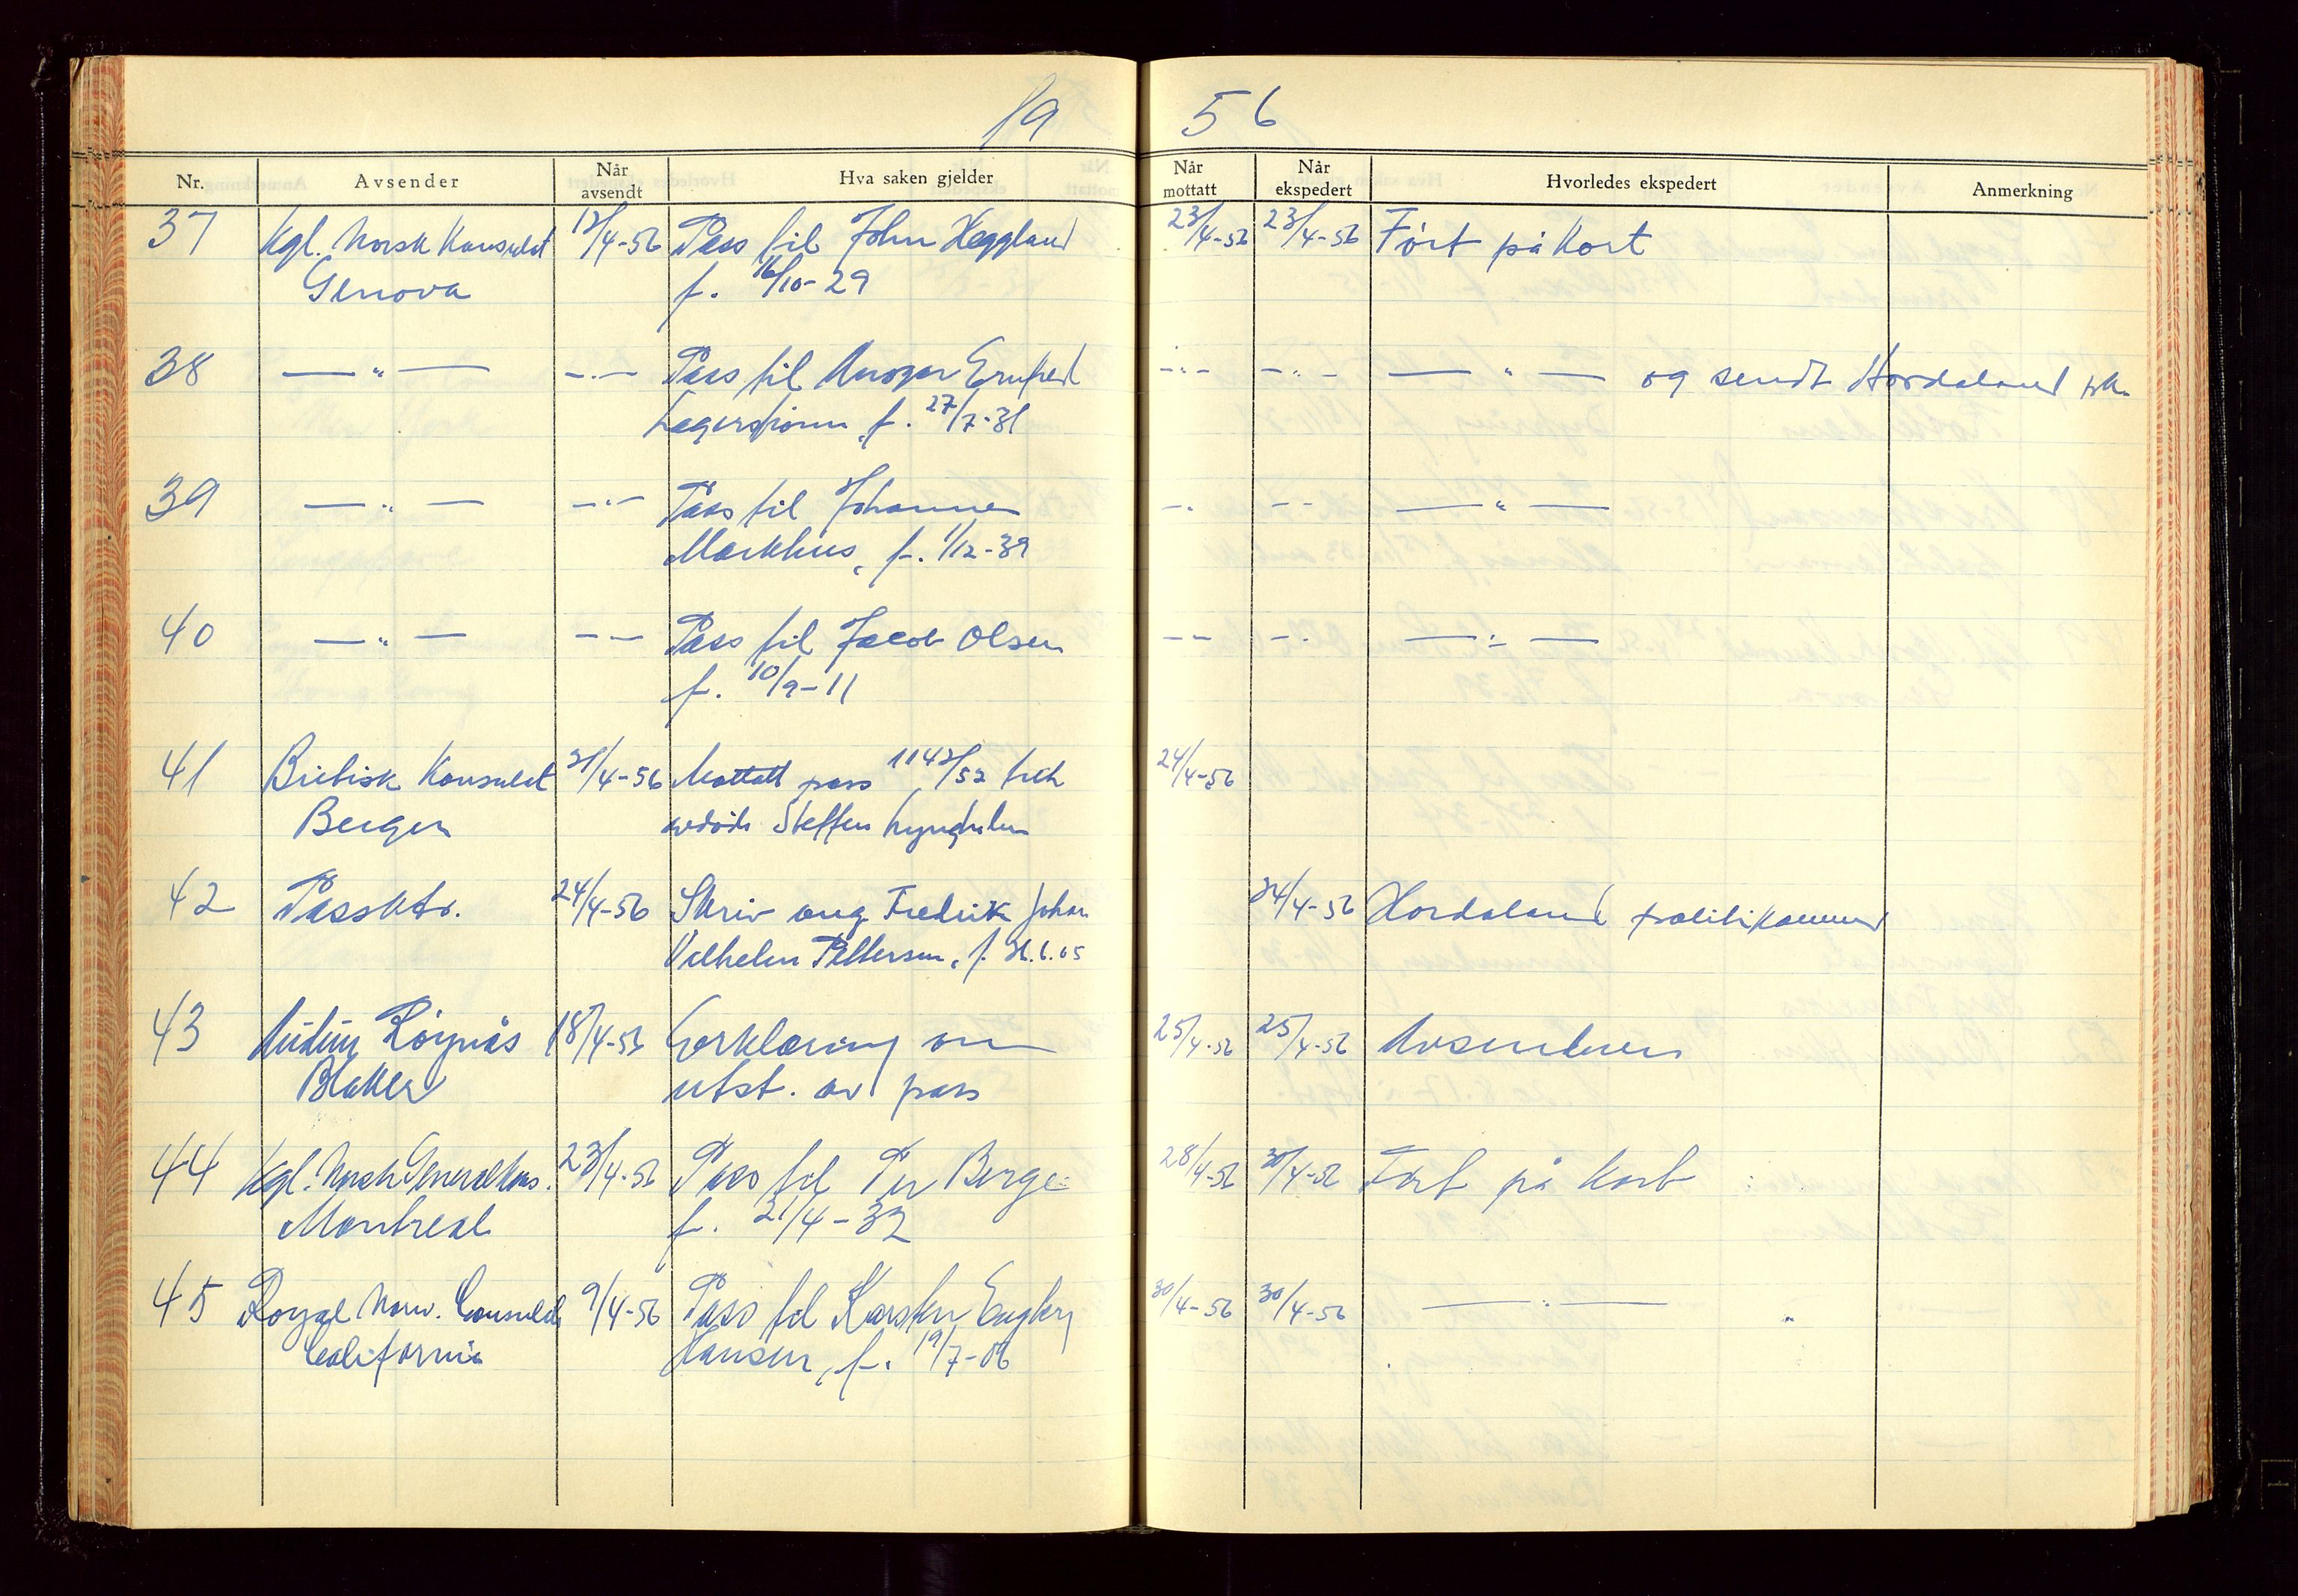 19 56
Nr. Avsender Når avsendt Hva saken gjelder Når mottatt Når ekspedert Hvorledes ekspedert Anmerkning
37 Kgl. Norsk Konsulat /4-56 Pass til John Heggland 23/4-56 23/4-56 Ført på kort
Genova f. 16/10-29
38 — " — - " - Pass til Ernfred - " - - " - — " — og sendt Hordaland pk.
f. 27/7-31
39 — " — - " - Pass til Johannes - " - - — " —
Markhus, f. 1/12-39
40 — " — - - Pass til Jacob Olsen - - - - — " —
f. 10/9-11
41 Britisk Konsulat 21/4-56 Mottatt pass 1142/52 24/4-56
Bergen avdøde Steffen
42 Passktr. 24/4-56 Skriv ang. Fredrik Johan 24/4-56 Hordaland politikammer
Vilhelm Pettersen, f.
43 Røynås 18/4-56 Forklaring om 25/4-56 25/4-56 Avsenderen
Blaker utst. av pass
44 Kgl. Norsk Generalkons. 23/4-56 Pass til Per Berge 28/4-56 30/4-56 Ført på kort
Montreal f. 21/4-32
45 Royal Norw. Consulate 9/4-56 Pass til Karsten 30/4-56 30/4-56 — " — "
California Hansen, f. 19/7-06